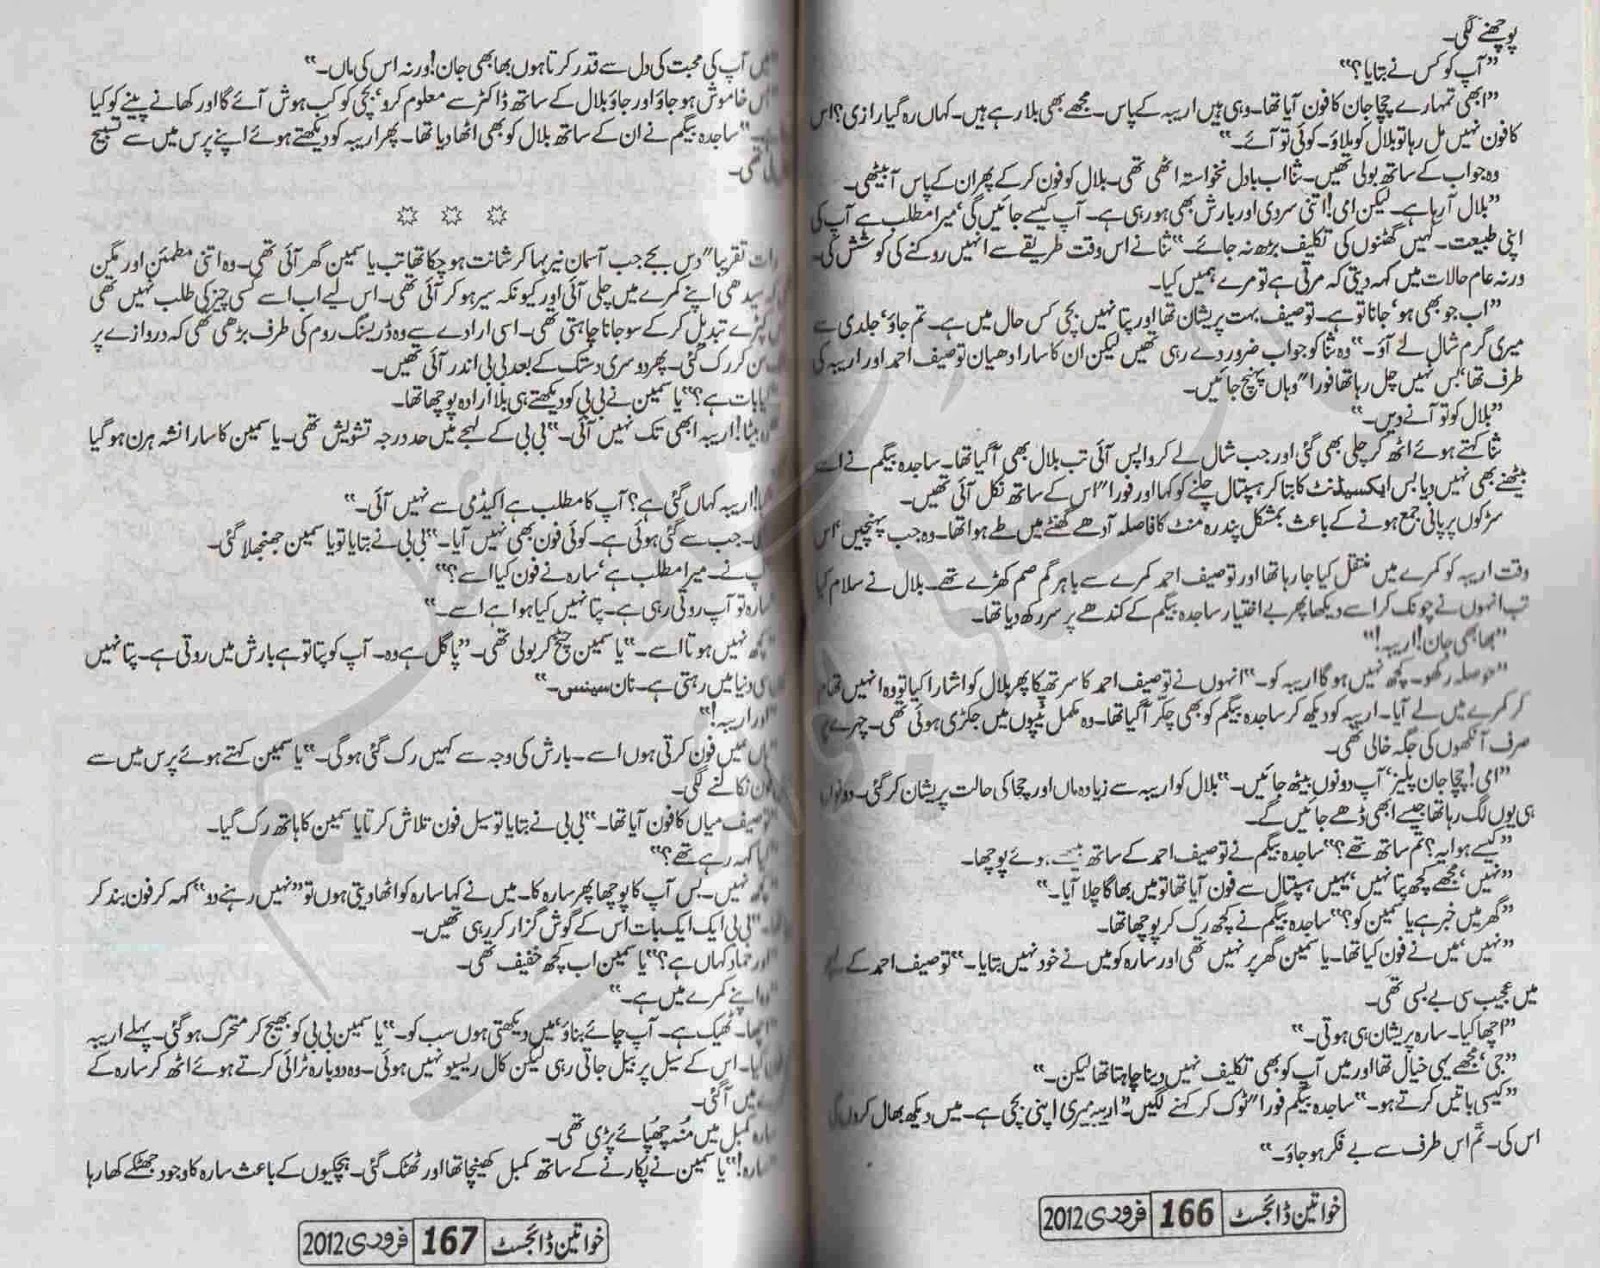 پوچھنے لگی۔
”آپ کو کس نے بتایا؟“
”ابھی تمہارے چچا جان کا فون آیا تھا۔ وہی ہیں اریبہ کے پاس۔ مجھے بھی بلا رہے ہیں۔ کہاں رہ گیا رازی؟ اس
کا فون نہیں مل رہا تو بلال کو بلاؤ۔ کوئی تو آئے۔“
وہ جواب کے ساتھ بولی تھیں۔ ثنا اب بادل نخواستہ اٹھی تھی۔ بلال کو فون کر کے پھر ان کے پاس آ بیٹھی۔
”بلال آ رہا ہے۔ لیکن امی! اتنی سردی اور بارش بھی ہو رہی ہے۔ آپ کیسے جائیں گی‘ میرا مطلب ہے آپ کی
اپنی طبیعت۔ کہیں گھٹنوں کی تکلیف بڑھ نہ جائے۔“ ثنا نے اس وقت طریقے سے انہیں روکنے کی کوشش کی۔
ورنہ عام حالات میں کہہ دیتی کہ مرتی ہے تو مرے ہمیں کیا۔
”اب جو بھی ہو‘ جانا تو ہے۔ توصیف بہت پریشان تھا اور پتا نہیں بچی کس حال میں ہے۔ تم جاؤ‘ جلدی سے
میری گرم شال لے آؤ۔“ وہ ثنا کو جواب ضرور دے رہی تھیں لیکن ان کا سارا دھیان توصیف احمد اور اریبہ کی
طرف تھا‘ بس نہیں چل رہا تھا فورا” وہاں پہنچ جائیں۔
”بلال کو تو آنے دیں۔“
ثنا کہتے ہوئے اٹھ کر چلی بھی گئی اور جب شال لے کر واپس آئی تب بلال بھی آ گیا تھا۔ ساجدہ بیگم نے اسے
بیٹھنے بھی نہیں دیا بس ایکسیڈنٹ کا بتا کر ہسپتال چلنے کو کہا اور فورا” اس کے ساتھ نکل آئی تھیں۔
سڑکوں پر پانی جمع ہونے کے باعث بمشکل پندرہ منٹ کا فاصلہ آدھے گھنٹے میں طے ہوا تھا۔ وہ جب پہنچیں‘ اس
وقت اریبہ کو کمرے میں منتقل کیا جا رہا تھا اور توصیف احمد کمرے سے باہر گم صم کھڑے تھے۔ بلال نے سلام کیا
تب انہوں نے چونک کر اسے دیکھا پھر بے اختیار ساجدہ بیگم کے کندھے پر سر رکھ دیا تھا۔
”بھابھی جان! اریبہ!“
”حوصلہ رکھو۔ کچھ نہیں ہو گا اریبہ کو۔“ انہوں نے توصیف احمد کا سر تھپکا پھر بلال کو اشارا کیا تو وہ انہیں تھام
کر کمرے میں لے آیا۔ اریبہ کو دیکھ کر ساجدہ بیگم کو بھی چکر آ گیا تھا۔ وہ مکمل پٹیوں میں جکڑی ہوئی تھی۔ چہرے پر
صرف آنکھوں کی جگہ خالی تھی۔
”امی! چچا جان پلیز‘ آپ دونوں بیٹھ جائیں۔“ بلال کو اریبہ سے زیادہ ماں اور چچا کی حالت پریشان کر گئی۔ دونوں
ہی یوں لگ رہا تھا جیسے ابھی ڈھے جائیں گے۔
”کیسے ہوا یہ؟ تم ساتھ تھے؟“ ساجدہ بیگم نے توصیف احمد کے ساتھ بیٹھتے ہوئے پوچھا۔
”نہیں‘ مجھے کچھ پتا نہیں‘ یہیں ہسپتال سے فون آیا تھا تو میں بھاگا چلا آیا۔“
”گھر میں خبر ہے یاسمین کو؟“ ساجدہ بیگم نے کچھ رک کر پوچھا تھا۔
”نہیں‘ میں نے فون کیا تھا۔ یاسمین گھر پر نہیں تھی اور سارہ کو میں نے خود نہیں بتایا۔“ توصیف احمد کے لہجے
میں عجیب سی بے بسی تھی۔
”اچھا کیا۔ سارہ پریشان ہی ہوتی۔“
”جی‘ مجھے یہی خیال تھا اور میں آپ کو بھی تکلیف نہیں دینا چاہتا تھا لیکن۔“
”کیسی باتیں کرتے ہو۔“ ساجدہ بیگم فورا” ٹوک کر کہنے لگیں۔ ”اریبہ میری اپنی بچی ہے۔ میں دیکھ بھال کروں گی
اس کی۔ تم اس طرف سے بے فکر ہو جاؤ۔“
خواتین ڈائجسٹ 166 فروری 2012
”میں آپ کی محبت کی دل سے قدر کرتا ہوں بھابھی جان! ورنہ اس کی ماں۔“
خاموش ہو جاؤ اور جاؤ بلال کے ساتھ ڈاکٹر سے معلوم کرو‘ بچی کو کب ہوش آئے گا اور کھانے پینے کو کیا
”ساجدہ بیگم نے ان کے ساتھ بلال کو بھی اٹھا دیا تھا۔ پھر اریبہ کو دیکھتے ہوئے اپنے پرس میں سے تسبیح
تھی۔
رات تقریبا” دس بجے جب آسمان نیر بہا کر شانت ہو چکا تھا تب یاسمین گھر آئی تھی۔ وہ اتنی مطمئن اور مگن
سیدھی اپنے کمرے میں چلی آئی اور کیونکہ سیر ہو کر آئی تھی۔ اس لیے اب اسے کسی چیز کی طلب نہیں تھی
کپڑے تبدیل کر کے سو جانا چاہتی تھی۔ اسی ارادے سے وہ ڈریسنگ روم کی طرف بڑھی تھی کہ دروازے پر
سن کر رک گئی۔ پھر دوسری دستک کے بعد بی بی اندر آئی تھیں۔
”کیا بات ہے؟“ یاسمین نے بی بی کو دیکھتے ہی بلا ارادہ پوچھا تھا۔
بیٹا! اریبہ ابھی تک نہیں آئی۔“ بی بی کے لہجے میں حد درجہ تشویش تھی۔ یاسمین کا سارا نشہ ہرن ہو گیا
اریبہ کہاں گئی ہے؟ آپ کا مطلب ہے اکیڈمی سے نہیں آئی۔“
جب سے گئی ہوئی ہے۔ کوئی فون بھی نہیں آیا۔“ بی بی نے بتایا تو یاسمین جھنجھلا گئی۔
آپ نے۔ میرا مطلب ہے‘ سارہ نے فون کیا اسے؟“
سارہ تو آپ روتی رہی ہے۔ پتا نہیں کیا ہوا ہے اسے۔“
”کچھ نہیں ہوتا اسے۔“ یاسمین چیخ کر بولی تھی۔ ”پاگل ہے وہ۔ آپ کو پتا تو ہے بارش میں روتی ہے۔ پتا نہیں
دنیا میں رہتی ہے۔ نان سینس۔“
”اور اریبہ!“
”ہاں میں فون کرتی ہوں اسے۔ بارش کی وجہ سے کہیں رک گئی ہو گی۔“ یاسمین کہتے ہوئے پرس میں سے
فون نکالنے لگی۔
”توصیف میاں کا فون آیا تھا۔“ بی بی نے بتایا تو سیل فون تلاش کرتا یاسمین کا ہاتھ رک گیا۔
”کیا کہہ رہے تھے؟“
”کچھ نہیں۔ بس آپ کا پوچھا پھر سارہ کا۔ میں نے کہا سارہ کو اٹھا دیتی ہوں تو ”نہیں رہنے دو“ کہہ کر فون بند کر
بی بی ایک ایک بات اس کے گوش گزار کر رہی تھیں۔
”اور حماد کہاں ہے؟“ یاسمین اب کچھ خفیف تھی۔
”وہ اپنے کمرے میں ہے۔“
”اچھا۔ ٹھیک ہے۔ آپ چائے بناؤ‘ میں دیکھتی ہوں سب کو۔“ یاسمین بی بی کو بھیج کر متحرک ہو گئی۔ پہلے اریبہ
کیا۔ اس کے سیل پر بیل جاتی رہی لیکن کال ریسیو نہیں ہوئی۔ وہ دوبارہ ٹرائی کرتے ہوئے اٹھ کر سارہ کے
میں آ گئی۔
سارہ کمبل میں منہ چھپائے پڑی تھی۔
”سارہ!“ یاسمین نے پکارنے کے ساتھ کمبل کھینچا تھا اور ٹھنک گئی۔ ہچکیوں کے باعث سارہ کا وجود جھٹکے کھا رہا
خواتین ڈائجسٹ 167 فروری 2012